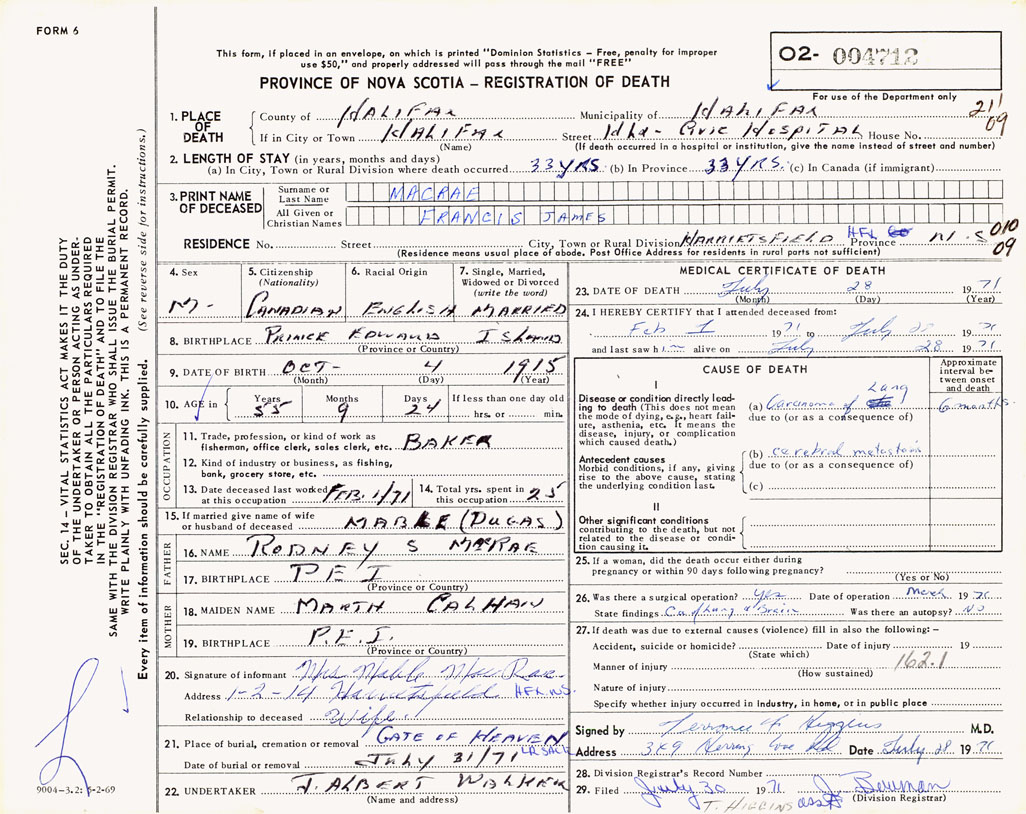 FORM 6
This form, if placed in an envelope, on which is printed "Dominion Statistics – Free, penalty for improper
use $50," and properly addressed will pass through the mail "FREE"
PROVINCE OF NOVA SCOTIA – REGISTRATION OF DEATH
O2- 004712
For use of the Department only
211
09
1. PLACE OF DEATH
County of HALIFAX Municipality of HALIFAX
If in City or Town HALIFAX Street Hfx- Civic HOSPITAL House No.
(Name) (If death occurred in a hospital or institution, give the name instead of street and number)
2. LENGTH OF STAY (in years, months and days)
(a) In City, Town or Rural Division where death occurred 33 YRS (b) In Province 33 YRS. (c) In Canada (if immigrant)
3. PRINT NAME OF DECEASED
Surname or Last Name MACRAE
All Given or Christian Names FRANCIS JAMES
RESIDENCE No. Street City, Town or Rural Division HARRIETSFIELD HFX Co Province N.S 010
09
(Residence means usual place of abode. Post Office Address for residents in rural parts not sufficient)
4. Sex 5. Citizenship (Nationality) 6. Racial Origin 7. Single, Married, Widowed or Divorced (write the word)
M- CANADIAN ENGLISH MARRIED
8. BIRTHPLACE PRINCE EDWARD ISLAND
(Province or Country)
9. DATE OF BIRTH OCT- 4 1915
(Month) (Day) (Year)
10. AGE in Years Months Days If less than one day old
55 9 24 hrs. or min.
OCCUPATION
11. Trade, profession, or kind of work as
fisherman, office clerk, sales clerk, etc. BAKER
12. Kind of industry or business, as fishing,
bank, grocery store, etc.
13. Date deceased last worked at this occupation FEB. 1/71 14. Total yrs. spent in this occupation 25
15. If married give name of wife
or husband of deceased MABLE (DUGAS)
FATHER
16. NAME RODNEY S MACRAE
17. BIRTHPLACE P E I
(Province or Country)
MOTHER
18. MAIDEN NAME MARTH CALHAIN
19. BIRTHPLACE P.E.I.
(Province or Country)
20. Signature of informant Mrs Mable MacRae
Address 1-2-14 Harrietsfield HFX.NS.
Relationship to deceased Wife
21. Place of burial, cremation or removal GATE OF HEAVEN
LR.SACK
Date of burial or removal July 31/71
22. UNDERTAKER J. ALBERT WALKER
(Name and address)
MEDICAL CERTIFICATE OF DEATH
23. DATE OF DEATH July 28 1971
(Month) (Day) (Year)
24. I HEREBY CERTIFY that I attended deceased from:
Feb 1 1971 to July 28 71
and last saw him alive on July 28 1971
CAUSE OF DEATH
Approximate interval between onset and death
I
Disease or condition directly leading to death (This does not mean the mode of dying, e.g., heart failure, asthenia, etc. It means the disease, injury, or complication which caused death.)
(a) Carcinoma of Lung 6 months
due to (or as a consequence of)
Antecedent causes
Morbid conditions, if any, giving rise to the above cause, stating the underlying condition last.
(b) cerebral metastasis
due to (or as a consequence of)
(c)
II
Other significant conditions
contributing to the death, but not related to the disease or condition causing it.
25. If a woman, did the death occur either during
pregnancy or within 90 days following pregnancy?
(Yes or No)
26. Was there a surgical operation? Yes Date of operation March 1971
State findings Ca of Lung & Brain Was there an autopsy? No
27. If death was due to external causes (violence) fill in also the following: –
Accident, suicide or homicide? Date of injury 19
(State which)
Manner of injury 162.1
(How sustained)
Nature of injury
Specify whether injury occurred in industry, in home, or in public place
Signed by Terrence Higgins M.D.
Address 349 Herring Cove Rd Date July 28 1971
28. Division Registrar's Record Number
29. Filed July 30 1971 J. Bowman
T. HIGGINS asst (Division Registrar)
SEC. 14 – VITAL STATISTICS ACT MAKES IT THE DUTY
OF THE UNDERTAKER OR PERSON ACTING AS UNDER-
TAKER TO OBTAIN ALL THE PARTICULARS REQUIRED
IN THE "REGISTRATION OF DEATH" AND TO FILE THE
SAME WITH THE DIVISION REGISTRAR WHO SHALL ISSUE THE BURIAL PERMIT.
WRITE PLAINLY WITH UNFADING INK. THIS IS A PERMANENT RECORD.
Every item of information should be carefully supplied. (See reverse side for instructions.)
9004-3.2: 5-2-69